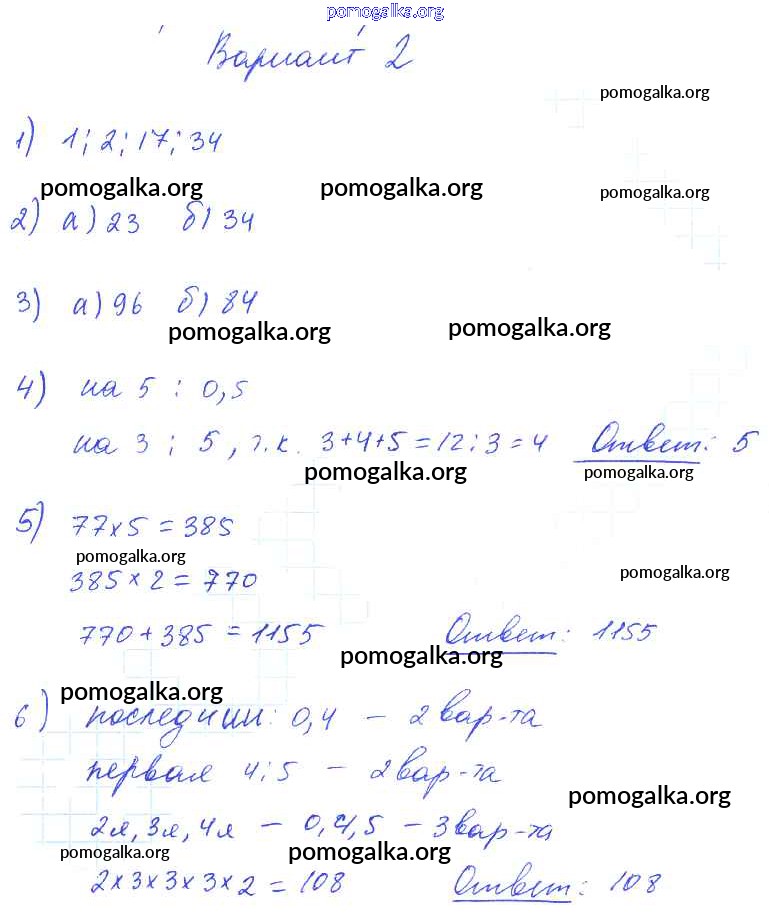 pomogalka.org
Вариант 2
pomogalka.org
1) 1; 2; 17; 34
pomogalka.org pomogalka.org pomogalka.org
2) а) 23 б) 34
3) а) 96 б) 84
pomogalka.org pomogalka.org
4) на 5 : 0,5
на 3 ; 5, т.к. 3+4+5=12:3=4 Ответ: 5
pomogalka.org pomogalka.org
5) 77×5=385
pomogalka.org
385×2=770 pomogalka.org
770+385=1155 Ответ: 1155
pomogalka.org
pomogalka.org
6) последнии: 0,4 – 2 вар-та
первая 4;5 – 2 вар-та
pomogalka.org
2я, 3я, 4я – 0,4,5 – 3 вар-та
pomogalka.org pomogalka.org
2×3×3×3×2=108 Ответ: 108